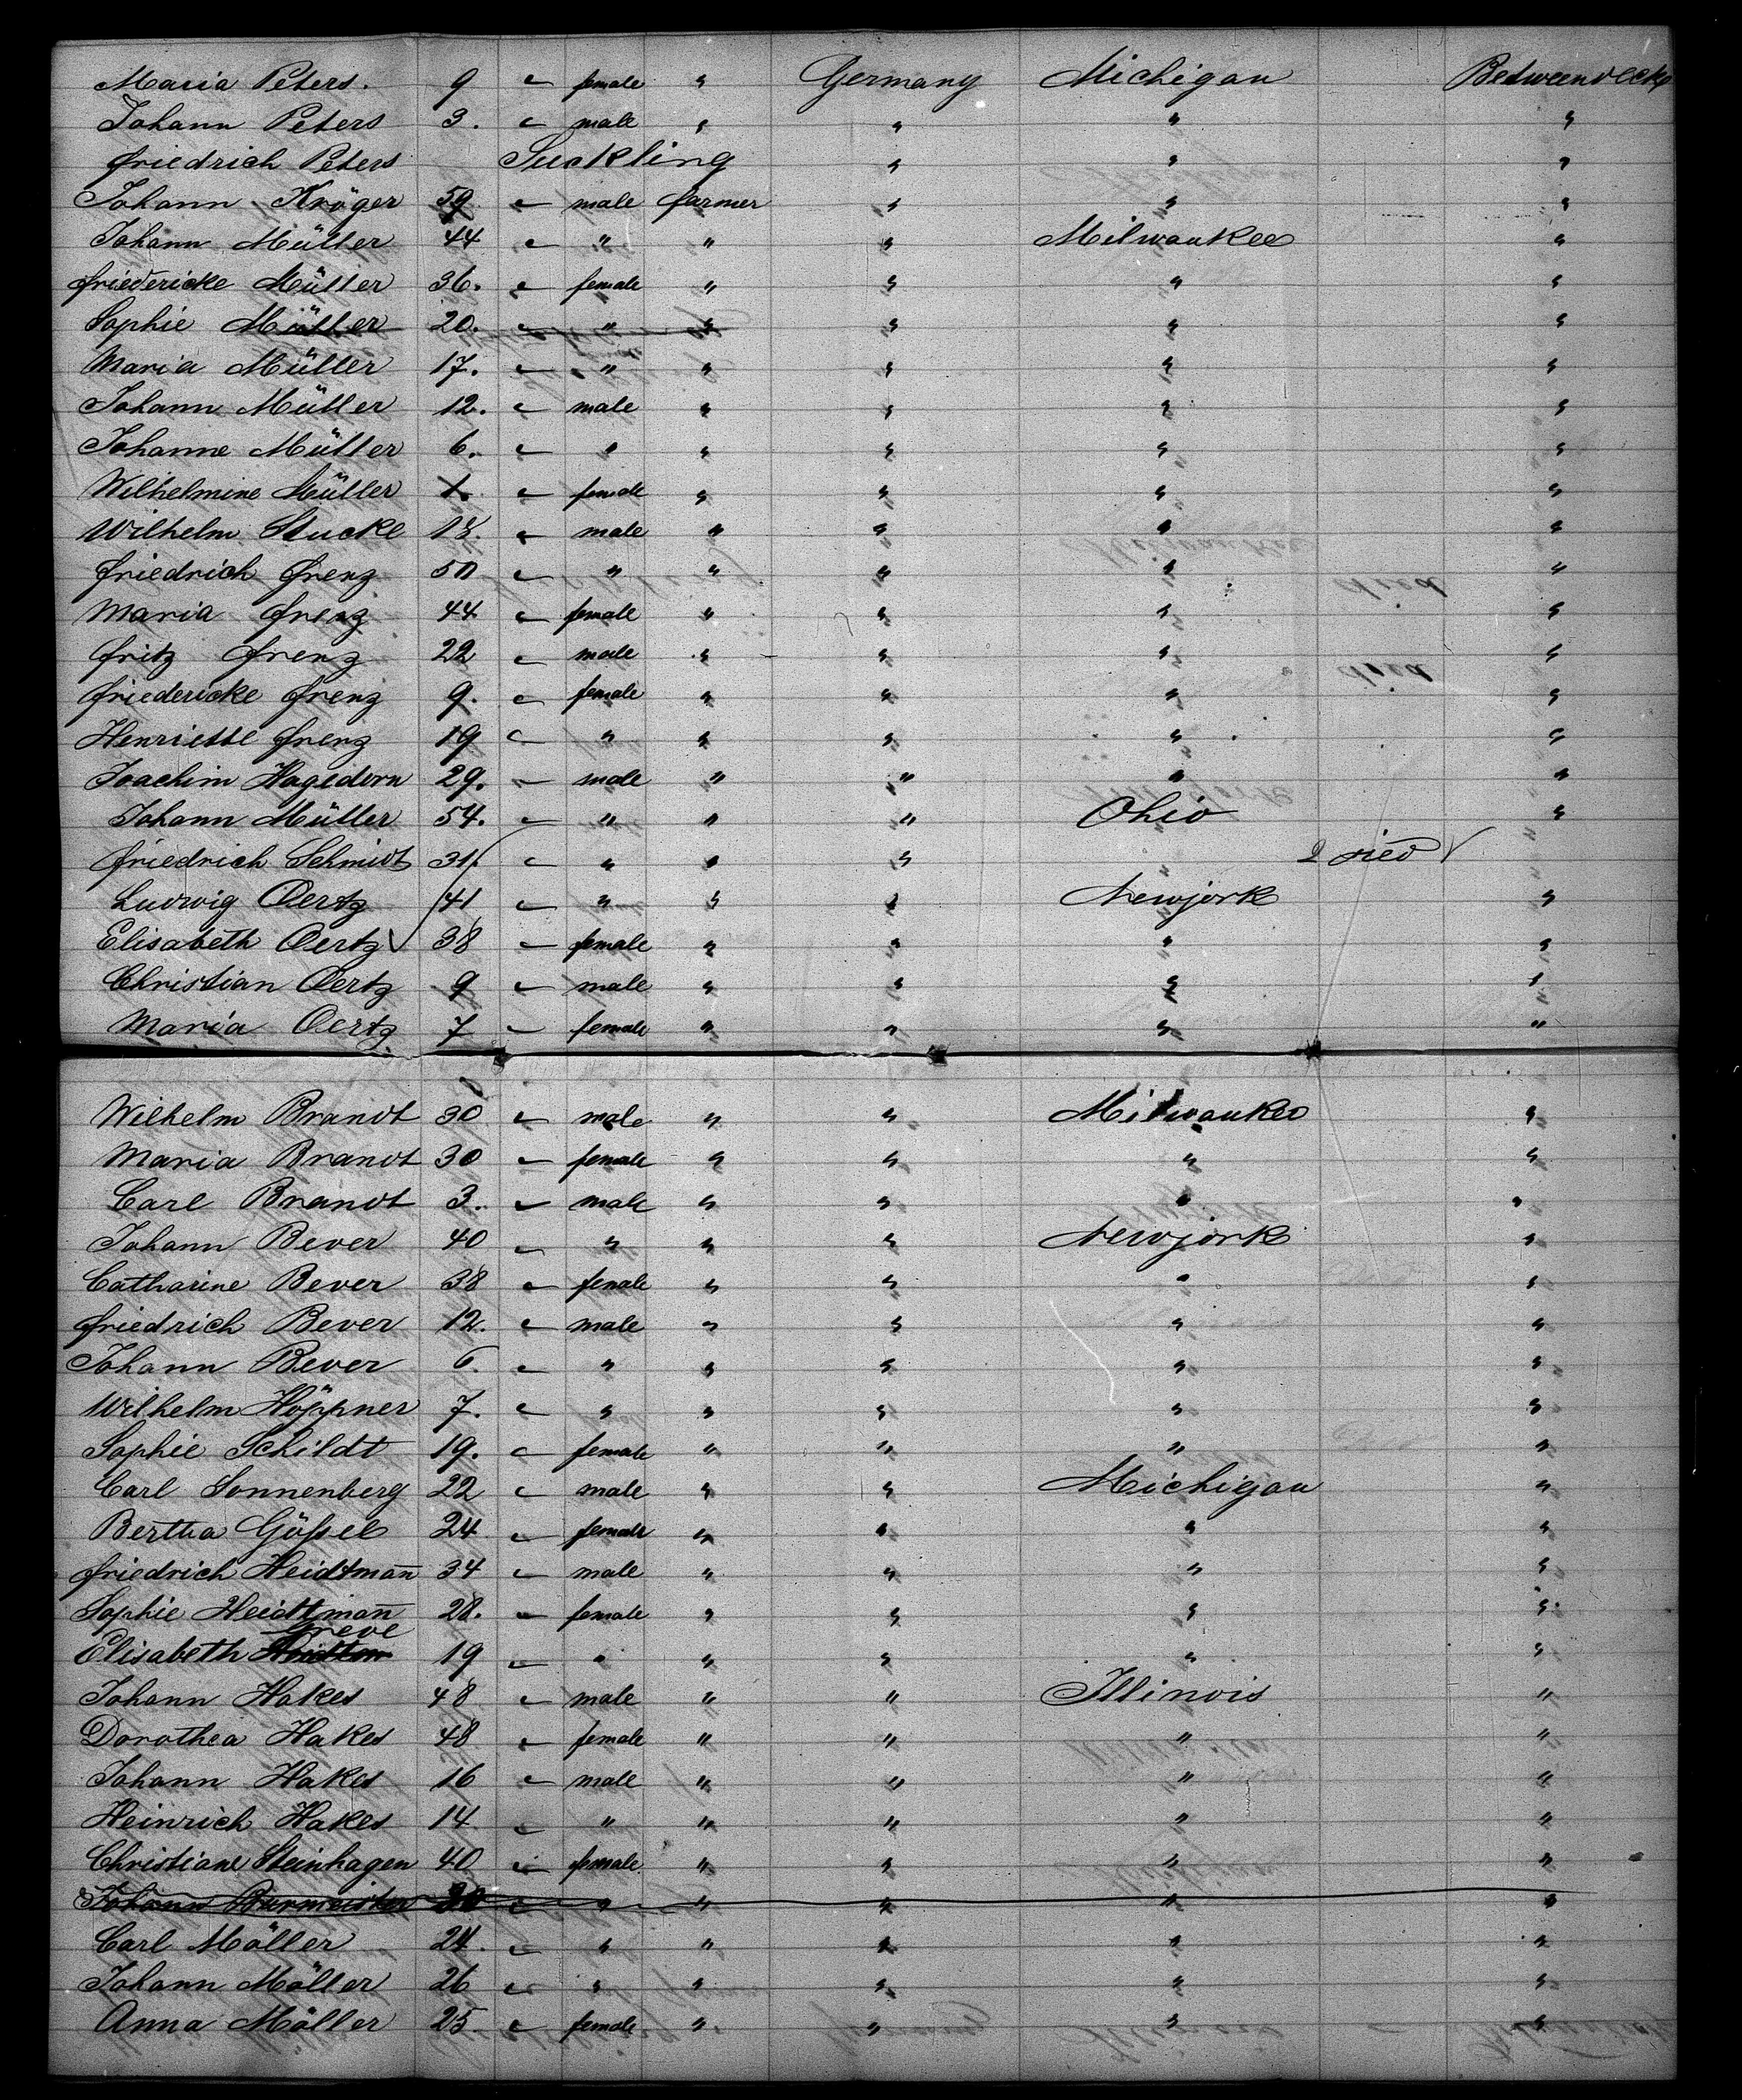 Maria Peters. 9 " female " Germany Michigan Betweendecks
Johann Peters 3. " male " " " "
Friedrich Peters Suckling " " "
Johann Kröger 59 " male farmer " " "
Johann Müller 44 " " " " Milwaukee "
Friedericke Müller 36. " female " " " "
Sophie Müller 20. " " " " " "
Maria Müller 17. " " " " " "
Johann Müller 12. " male " " " "
Johanne Müller 6. " " " " " "
Wilhelmine Müller 1. " female " " " "
Wilhelm Stucke 18. " male " " " "
Friedrich Frenz 50 " " " " " "
Maria Frenz 44 " female " " " "
Fritz Frenz 22 " male " " " "
Friedericke Frenz 9. " female " " " "
Henriette Frenz 19 " " " " " "
Joachim Hagedorn 29. " male " " " "
Johann Müller 54. " " " " Ohio "
Friedrich Schmidt 31. " " " " 2 died
Ludwig Oertz 41 " " " " Newjork "
Elisabeth Oertz 38 " female " " " "
Christian Oertz 9 " male " " " "
Maria Oertz 7 " female " " " "
Wilhelm Brandt 30 " male " " Milwaukee "
Maria Brandt 30 " female " " " "
Carl Brandt 3. " male " " " "
Johann Bever 40 " " " " Newjork "
Catharine Bever 38 " female " " " "
Friedrich Bever 12. " male " " " "
Johann Bever 6. " " " " " "
Wilhelm Höppner 7. " " " " " "
Sophie Schildt 19. " female " " " "
Carl Sonnenberg 22 " male " " Michigan "
Bertha Gößel 24 " female " " " "
Friedrich Heidtmañ 34 " male " " " "
Sophie Heidtmañ 28. " female " " " "
Greve
Elisabeth 19 " " " " " "
Johann Hakes 48 " male " " Illinois "
Dorothea Hakes 48 " female " " " "
Johann Hakes 16 " male " " " "
Heinrich Hakes 14 " " " " " "
Christiane Steinhagen 40 " female " " " "
Johann Burmeister " " " " " "
Carl Möller 24. " " " " " "
Johann Möller 26 " " " " " "
Anna Möller 25. " female " " " "